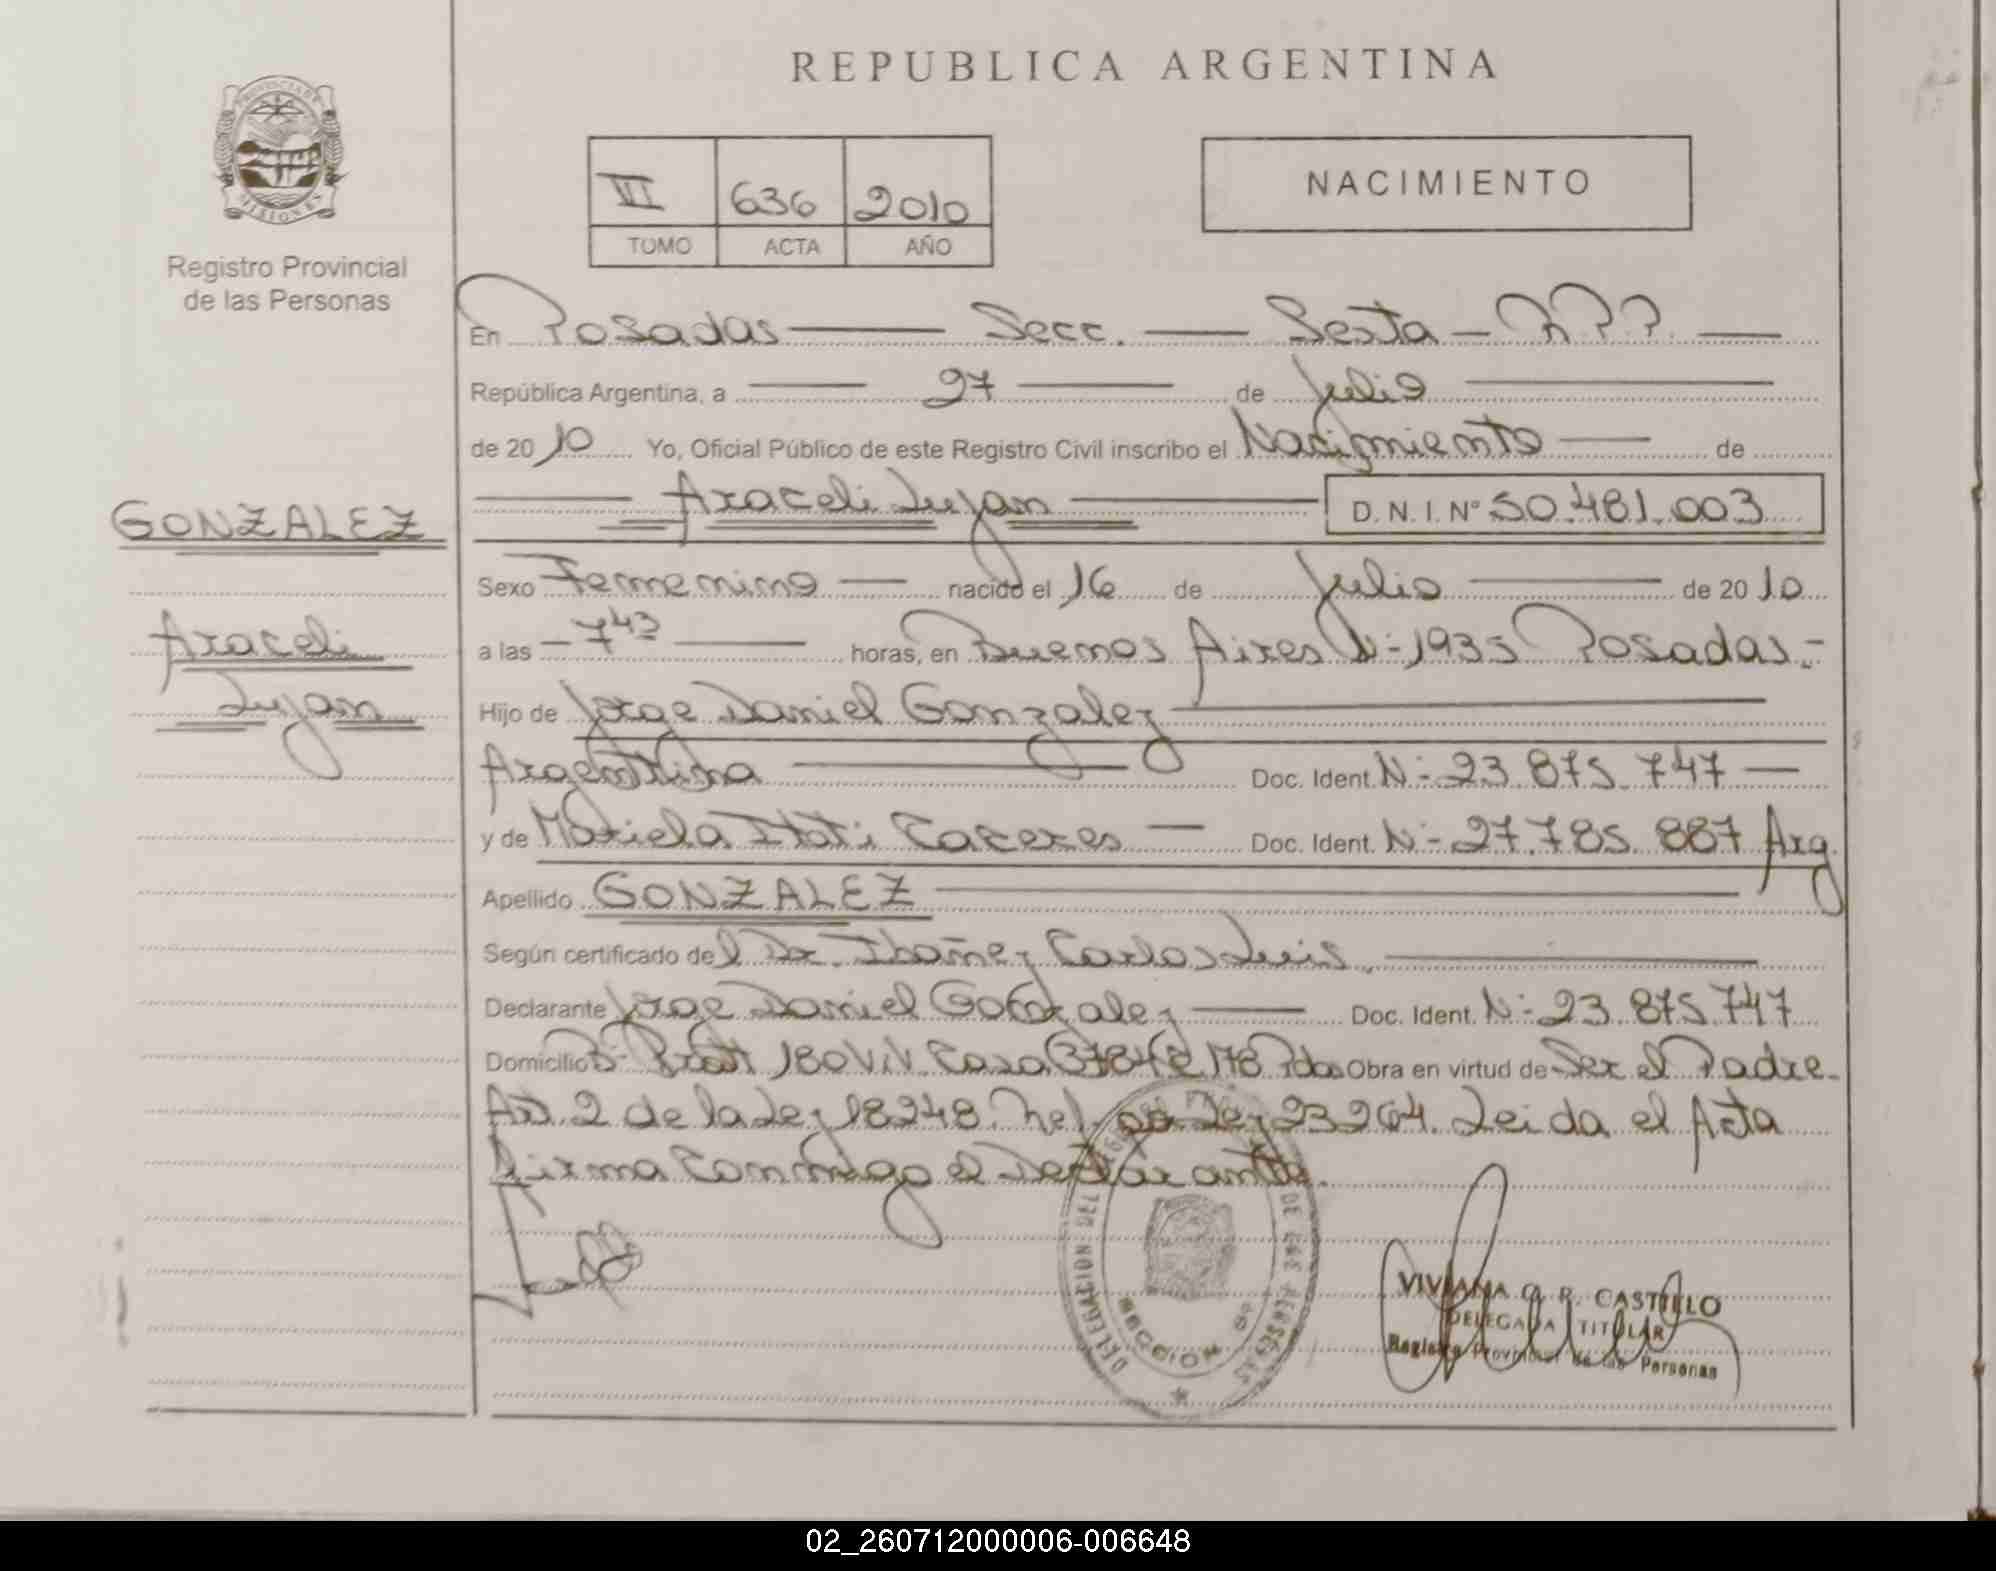 REPUBLICA ARGENTINA
PROVINCIA DE
MISIONES
Registro Provincial
de las Personas
VI 636 2010
TOMO ACTA AÑO
NACIMIENTO
En Posadas Secc. Sexta
República Argentina, a 27 de Julio
de 2010 Yo, Oficial Público de este Registro Civil inscribo el Nacimiento de
Araceli Lujan D.N.I. Nº 50.481.003
GONZALEZ
Araceli
Lujan
Sexo Femenino nacido el 16 de Julio de 2010
a las 7 43 horas, en Buenos Aires Nº 1935 Posadas.-
Hijo de Jorge Daniel Gonzalez
Argentina Doc. Ident. Nº 23.875.747
y de Mariela Itati Caceres Doc. Ident. Nº 27.785.887 Arg.
Apellido GONZALEZ
Según certificado del Dr. Ibañez Carlos Luis
Declarante Jorge Daniel Gonzalez Doc. Ident. Nº 23.875.747
Domicilio Bº 180 Viv. Casa Pdas Obra en virtud de Ser el Padre.
Art. 2 de la Ley 18248. Ley 23264. Leida el Acta
firma conmigo el Declarante.
DELEGACION DEL DE LAS PERSONAS
SECCION 6º
VIVIANA G. R. CASTILLO
DELEGADA TITULAR
Registro Provincial de las Personas
02_260712000006-006648